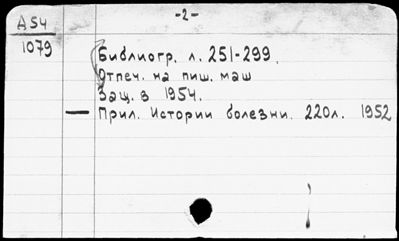 -2-
А54
1079
Библиогр. л. 251-299.
Отпеч. на пиш. маш
Защ. в 1954.
— Прил. Истории болезни. 220л. 1952